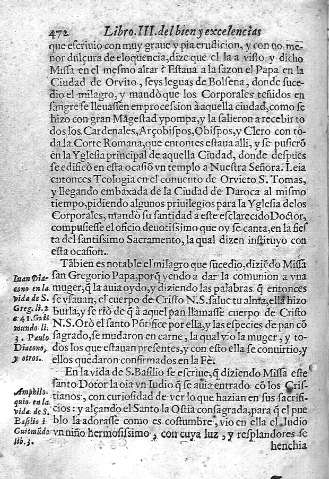 472 Libro. III. del bien y excelencias
que escriuio con muy graue y pia erudicion, y con no me-
nor dulçura de eloquencia, dize que el la a visto y dicho
Missa en el mesmo altar: Estaua a la sazon el Papa en la
Ciudad de Orvito, seys leguas de Bolsena, donde su-
cedio el milagro, y mandò que los Corporales teñidos en
sangre se lleuassen en procession à aquella ciudad, como se
hizo con gran Magestad y pompa, y la salieron a recebir to
dos los Cardenales, Arçobispos, Obispos, y Clero con to-
da la Corte Romana, que entonces estaua alli, y se pusierõ
en la Yglesia principal de aquella Ciudad, donde despues
se edificò en esta ocasiõ vn templo a Nuestra Señora. Leia
entonces Teologia en el conuento de Orvieto S. Tomas,
y llegando embaxada de la Ciudad de Daroca al mismo
tiempo, pidiendo algunos priuilegios para la Yglesia de los
Corporales, mandò su santidad a este esclarecido Doctor,
compusiesse el oficio deuotissimo que oy se canta, en la fies
ta del santissimo Sacramento, la qual dizen instituyo con
esta ocasion.
Tãbien es notable el milagro que sucedio, diziẽdo Missa
san Gregorio Papa, porq̃ yendo a dar la comunion a vna
muger, q̃ la auia oydo, y diziendo las palabras q̃ entonces
se vsauan, el cuerpo de Cristo N. S. salue tu alma, ella hizo
burla, y se riò de q̃ à aquel pan llamasse cuerpo de Cristo
N. S. Orò el santo Põtifice por ella, y las especies de pan cõ
sagrado, se mudaron en carne, la qual viò la muger, y to-
dos los que estauan presentes, y con esto ella se conuirtio, y
ellos quedaron confirmados en la Fè.
Iuan Dia-
cono en la
vida de S.
Greg. li. 2
3. Paulo
Diacono,
y otros.
En la vida de S. Basilio se escriue, q̃ diziendo Missa este
santo Dotor la oia vn Iudio q̃ se auia entrado cõ los Cris-
tianos, con curiosidad de ver lo que hazian en sus sacrifi-
cios: y alçando el Santo la Ostia consagrada, para q̃ el pue
blo la adorasse como es costumbre, vio en ella el Iudio
vn niño hermosissimo, con cuya luz, y resplandores se
Amphilo-
quio en la
vida de S.
Basilio i
Guitmũdo
lib. 3.
henchia